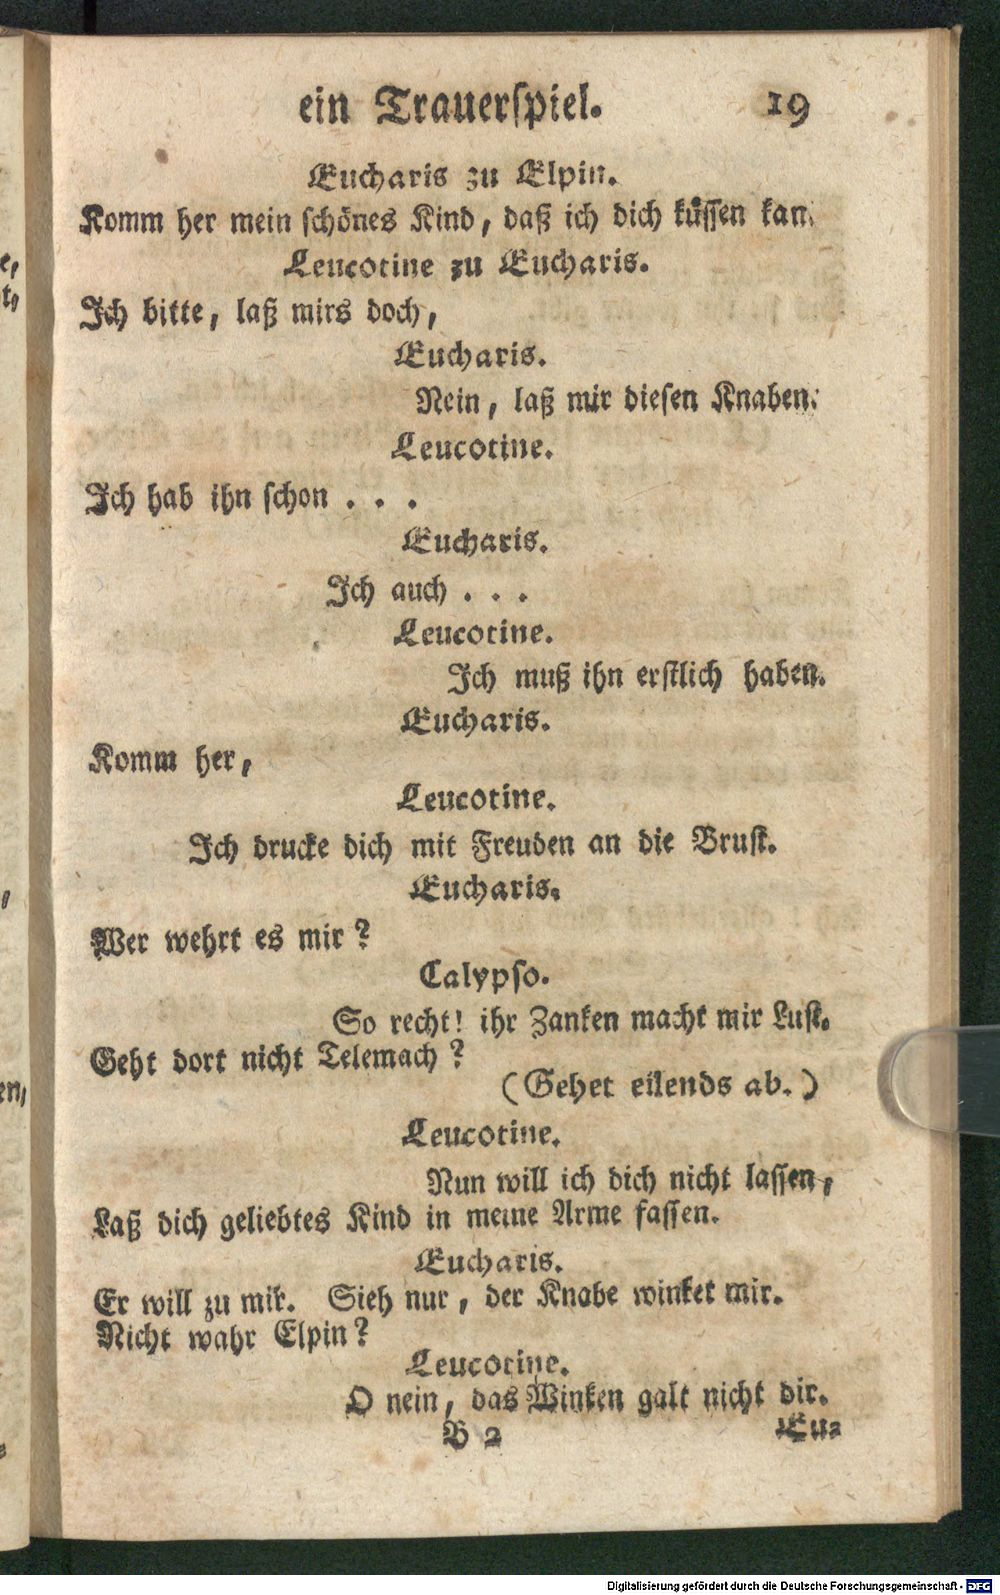 ein Trauerspiel. 19
Eucharis zu Elpin.
Komm her mein schönes Kind, daß ich dich küssen kan.
Leucotine zu Eucharis.
Ich bitte, laß mirs doch,
Eucharis.
Nein, laß mir diesen Knaben.
Leucotine.
Ich hab ihn schon . . .
Eucharis.
Ich auch . . .
Leucotine.
Ich muß ihn erstlich haben.
Eucharis.
Komm her,
Leucotine.
Ich drucke dich mit Freuden an die Brust.
Eucharis.
Wer wehrt es mir?
Calypso.
So recht! ihr Zanken macht mir Lust.
Geht dort nicht Telemach?
(Gehet eilends ab.)
Leucotine.
Nun will ich dich nicht lassen,
Laß dich geliebtes Kind in meine Arme fassen.
Eucharis.
Er will zu mir. Sieh nur, der Knabe winket mir.
Nicht wahr Elpin?
Leucotine.
O nein, das Winken galt nicht dir.
B 2 Eu-
Digitalisierung gefördert durch die Deutsche Forschungsgemeinschaft - DFG